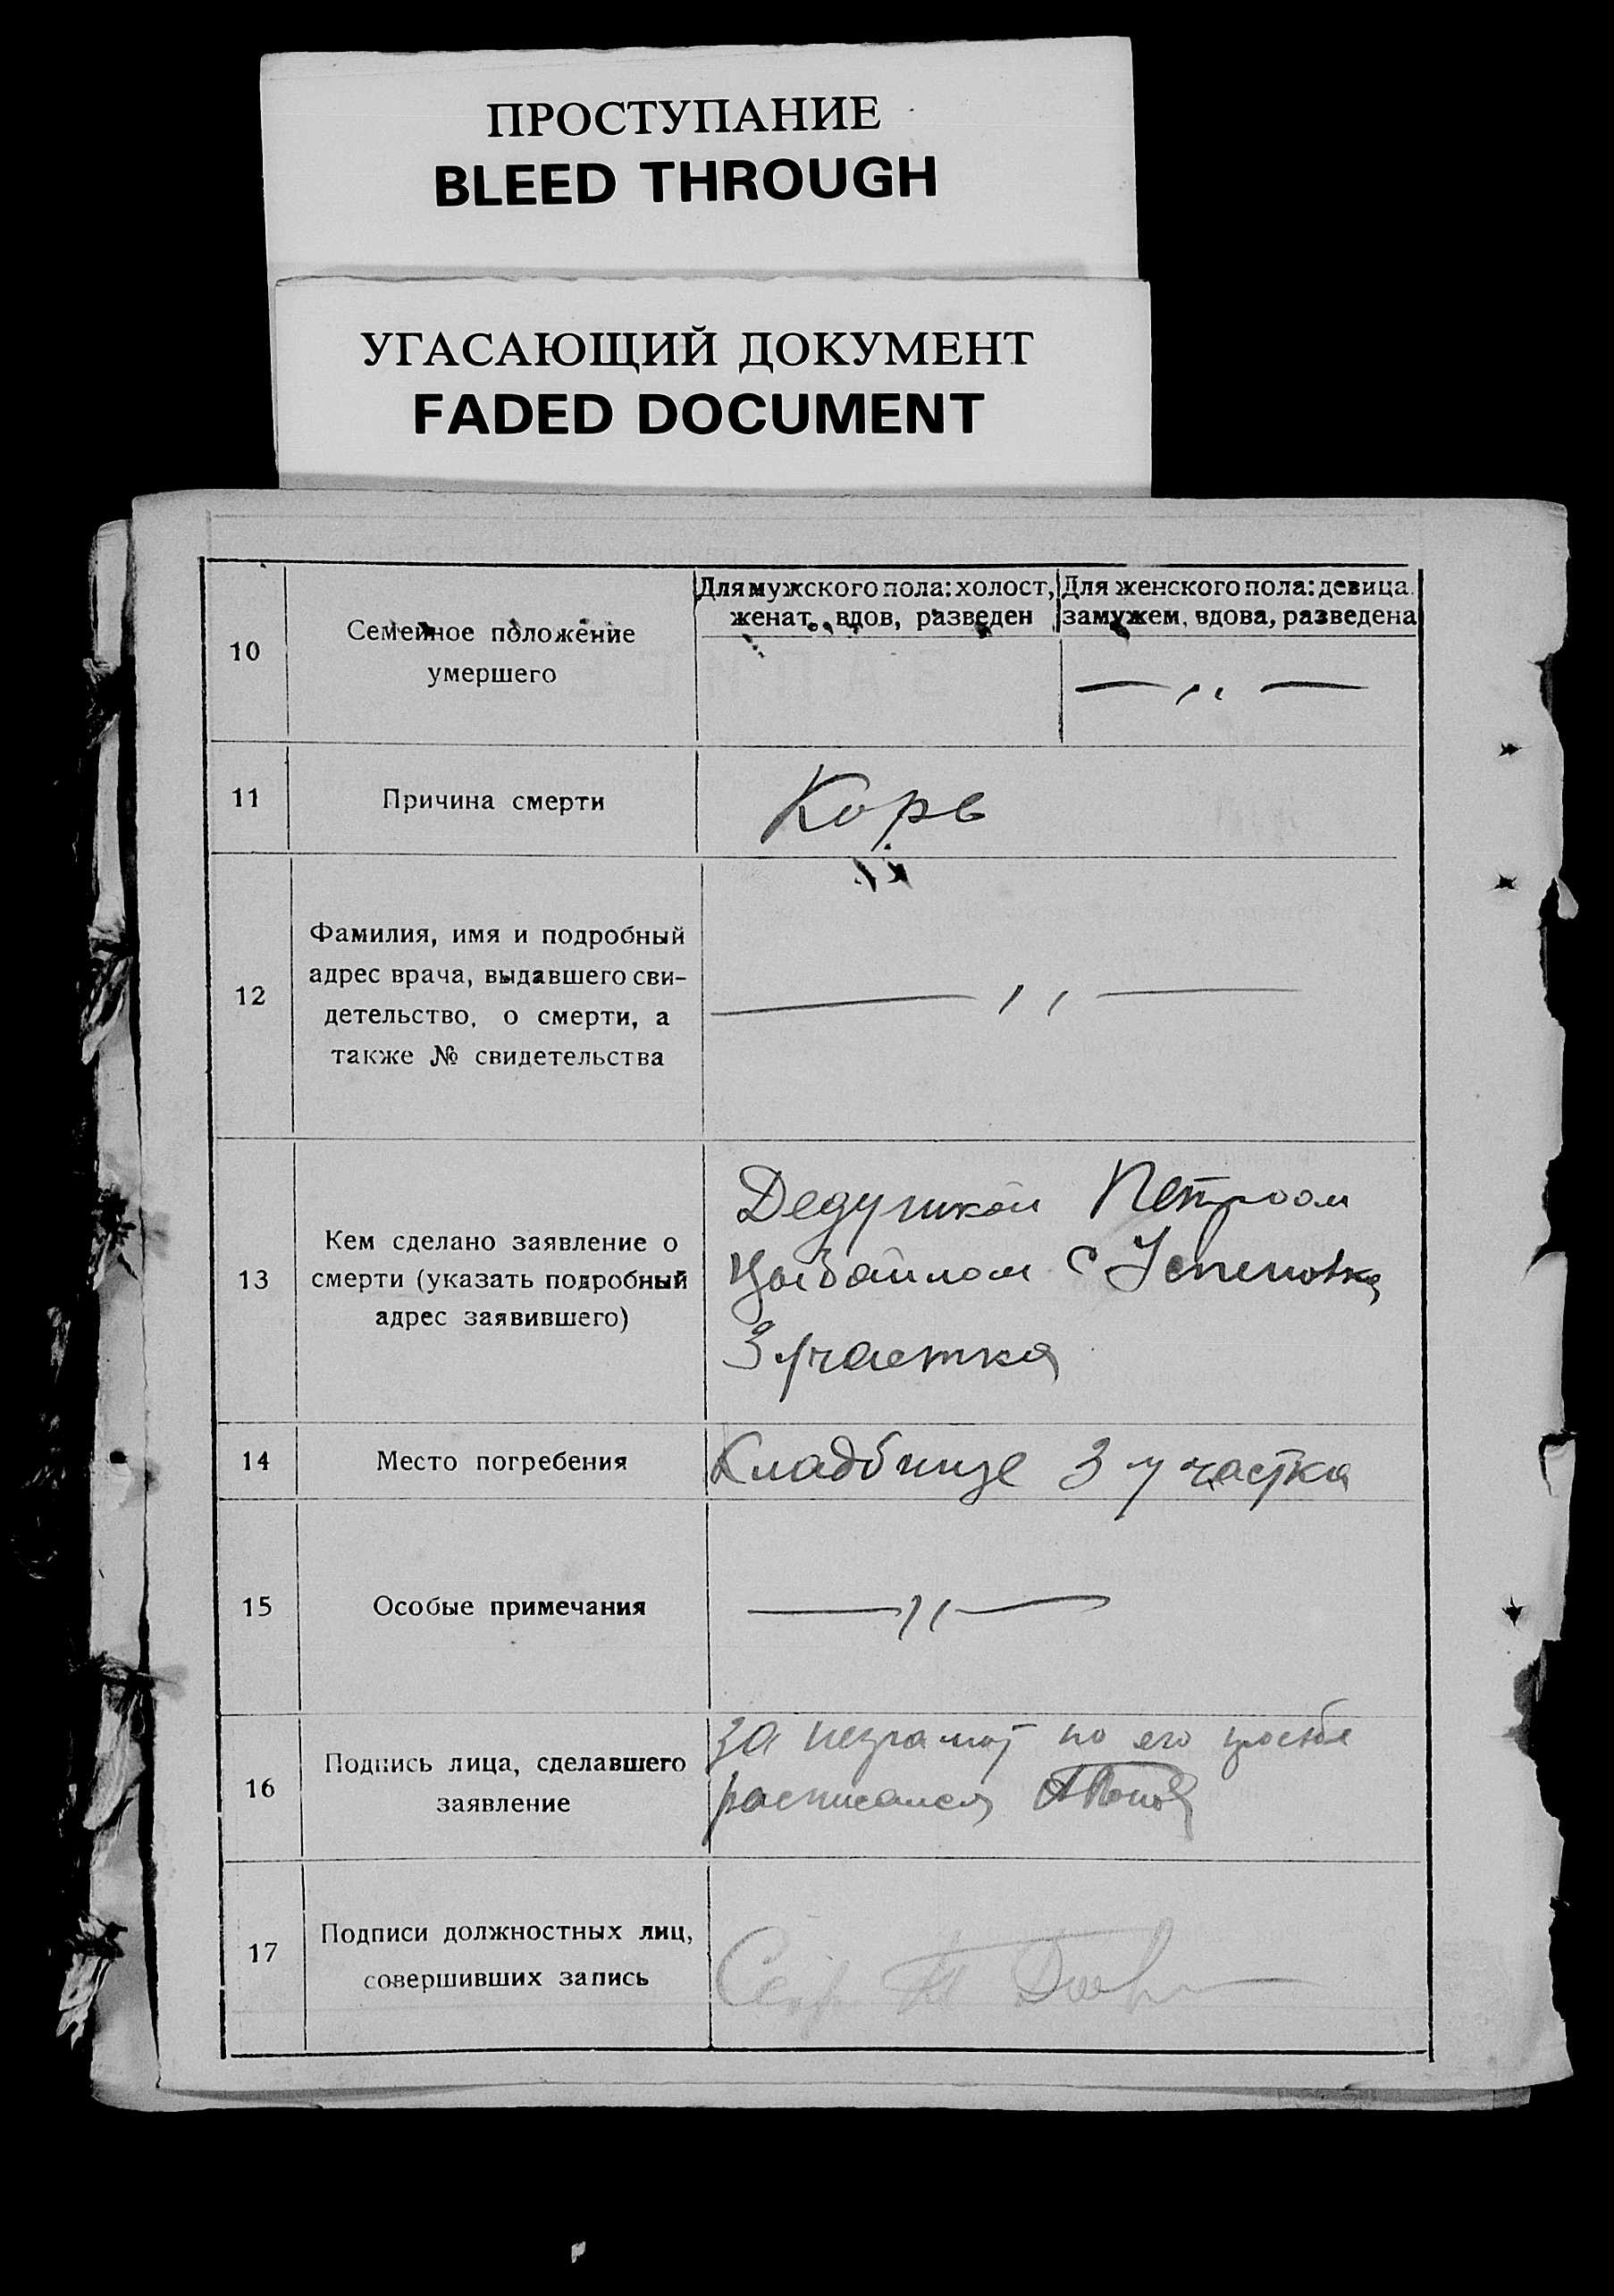 ПРОСТУПАНИЕ
BLEED THROUGH
УГАСАЮЩИЙ ДОКУМЕНТ
FADED DOCUMENT
10
Семейное положение
умершего
Для мужского пола: холост,
женат, вдов, разведен
Для женского пола: девица.
замужем, вдова, разведена
— ,, —
11
Причина смерти
Корь
12
Фамилия, имя и подробный
адрес врача, выдавшего сви-
детельство, о смерти, а
также № свидетельства
— ,, —
13
Кем сделано заявление о
смерти (указать подробный
адрес заявившего)
Дедушкой Петром
с Успеновка
3 участка
14
Место погребения
Кладбище 3 участка
15
Особые примечания
— ,, —
16
Подпись лица, сделавшего
заявление
за неграмот по его просьбе
расписался
17
Подписи должностных лиц,
совершивших запись